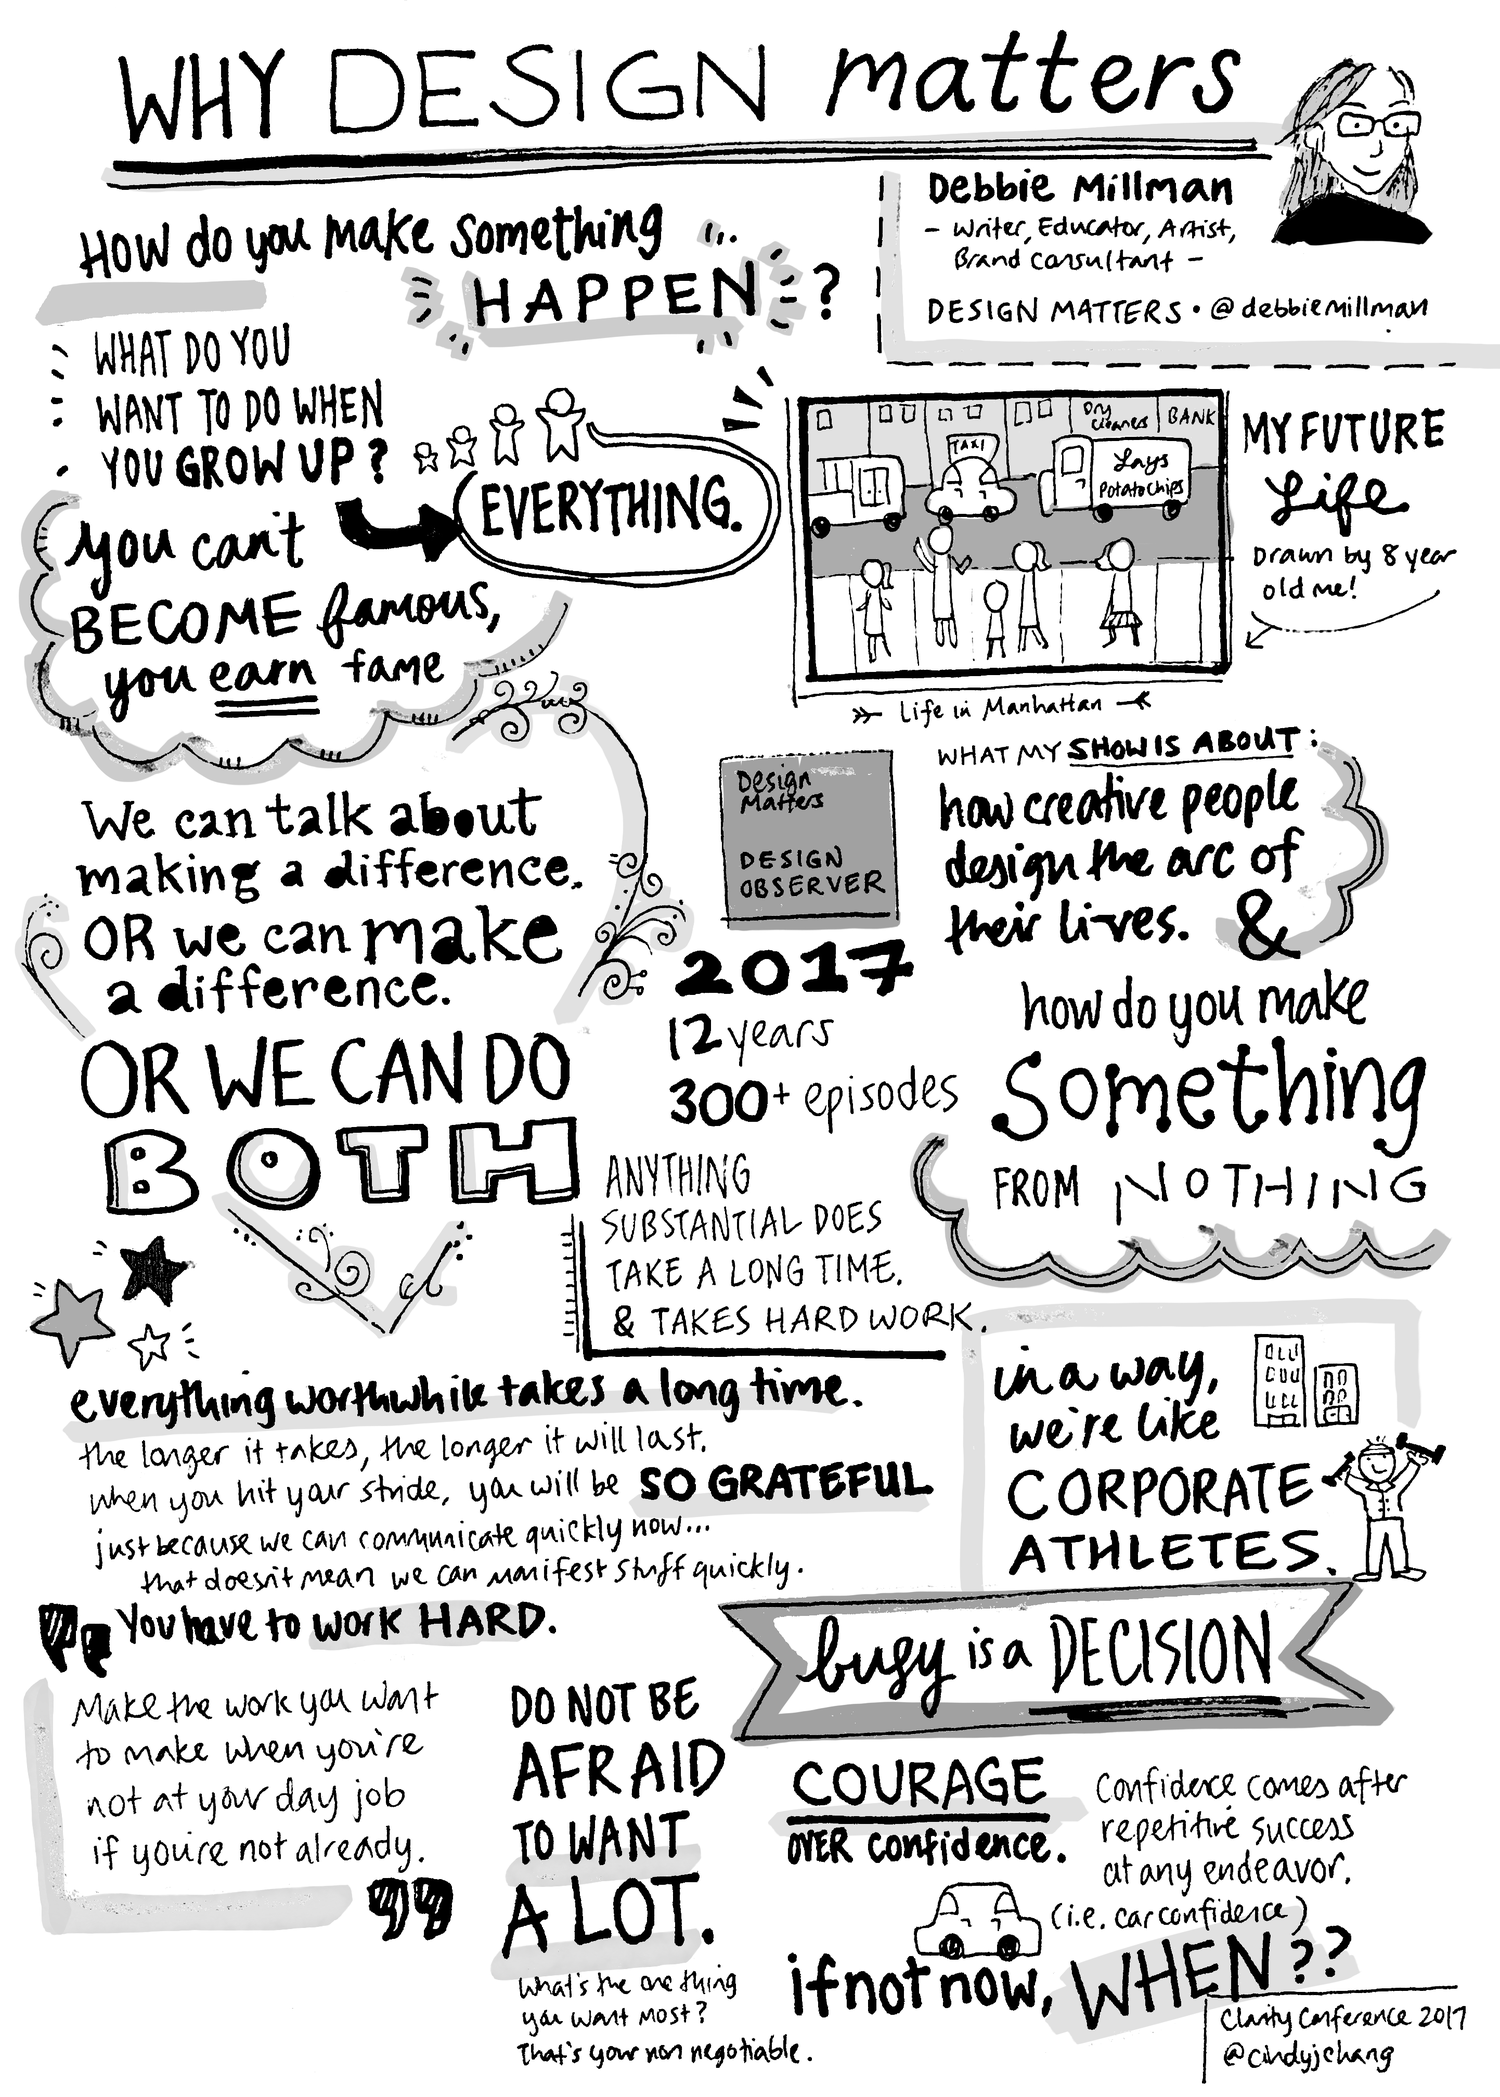 WHY DESIGN matters
Debbie Millman
- Writer, Educator, Artist,
Brand Consultant -
DESIGN MATTERS • @debbiemillman
How do you make something
HAPPEN ?
WHAT DO YOU
WANT TO DO WHEN
YOU GROW UP?
EVERYTHING.
you can't
BECOME famous,
you earn fame
Dry
Cleaners
BANK
TAXI
Lays
Potato Chips
MY FUTURE
Life
Drawn by 8 year
old me!
Life in Manhattan
We can talk about
making a difference.
OR we can make
a difference.
OR WE CAN DO
BOTH
Design
Matters
DESIGN
OBSERVER
2017
12 years
300+ episodes
WHAT MY SHOW IS ABOUT:
how creative people
design the arc of
their lives. &
how do you make
Something
FROM NOTHING
ANYTHING
SUBSTANTIAL DOES
TAKE A LONG TIME.
& TAKES HARD WORK.
everything worthwhile takes a long time.
the longer it takes, the longer it will last.
when you hit your stride, you will be SO GRATEFUL
just because we can communicate quickly now...
that doesn't mean we can manifest stuff quickly.
You have to work HARD.
in a way,
we're like
CORPORATE
ATHLETES.
busy is a DECISION
Make the work you want
to make when you're
not at your day job
if you're not already.
DO NOT BE
AFRAID
TO WANT
A LOT.
What's the one thing
you want most?
That's your non negotiable.
COURAGE
OVER confidence.
Confidence comes after
repetitive success
at any endeavor.
(i.e. car confidence)
if not now, WHEN??
Clarity Conference 2017
@cindyjchang